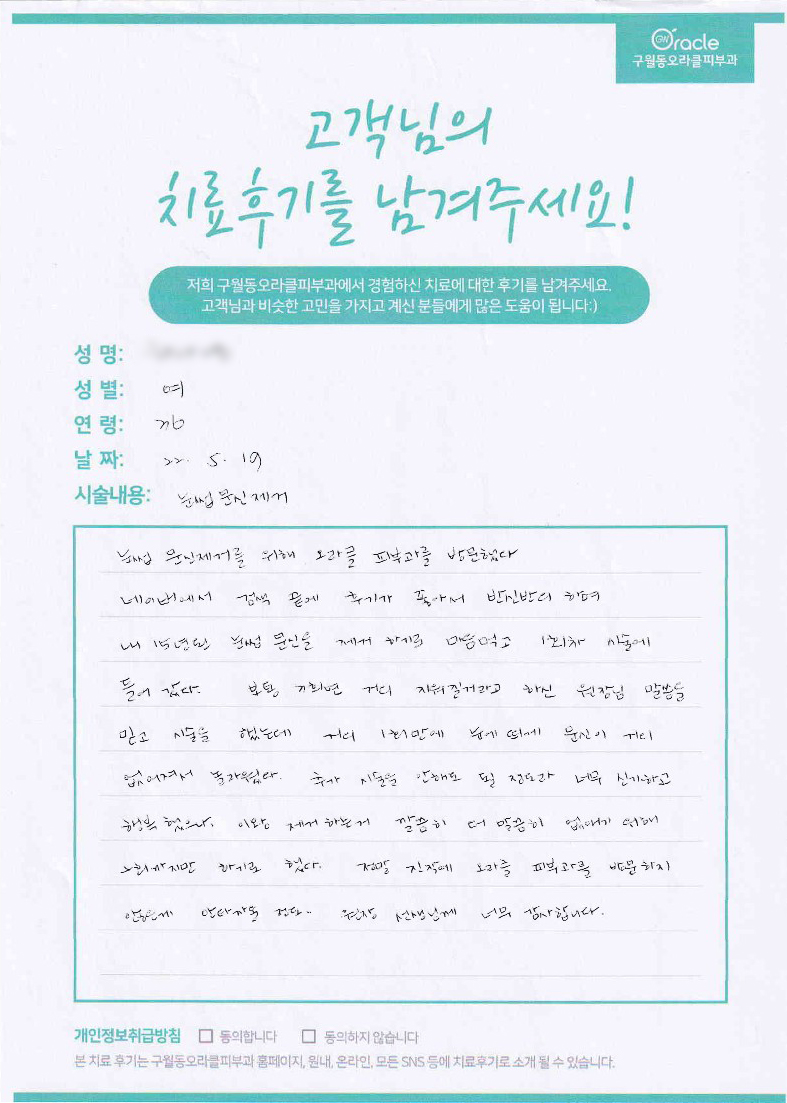 GN Oracle
구월동오라클피부과
고객님의
치료후기를 남겨주세요!
저희 구월동오라클피부과에서 경험하신 치료에 대한 후기를 남겨주세요.
고객님과 비슷한 고민을 가지고 계신 분들에게 많은 도움이 됩니다:)
성 명:
성 별: 여
연 령:
날 짜: 22. 5. 19
시술내용: 눈썹 문신제거
눈썹 문신제거를 위해 오라클 피부과를 방문했다
네이버에서 검색 끝에 후기가 좋아서 반신반의 하며
내 15년된 눈썹 문신을 제거 하기로 마음먹고 1회차 시술에
들어 갔다. 보통 기회면 거의 지워질거라고 하신 원장님 말씀을
믿고 시술을 했는데 거의 1회만에 눈에 띄게 문신이 거의
없어져서 놀라웠다. 추가 시술을 안해도 될 정도라 너무 신기하고
행복 했으나, 이왕 제거 하는거 깔끔히 더 말끔히 없애기 위해
2회까지만 하기로 했다. 정말 진작에 오라클 피부과를 방문하지
않은게 안타까울 정도.. 원장 선생님께 너무 감사합니다.
개인정보취급방침 □ 동의합니다 □ 동의하지 않습니다
본 치료 후기는 구월동오라클피부과 홈페이지, 원내, 온라인, 모든 SNS 등에 치료후기로 소개 될 수 있습니다.